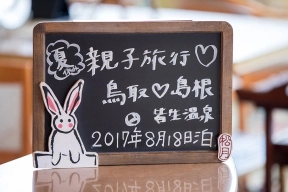 夏 親子旅行♡
鳥取♡島根
皆生温泉
2017年8月18日泊
松月